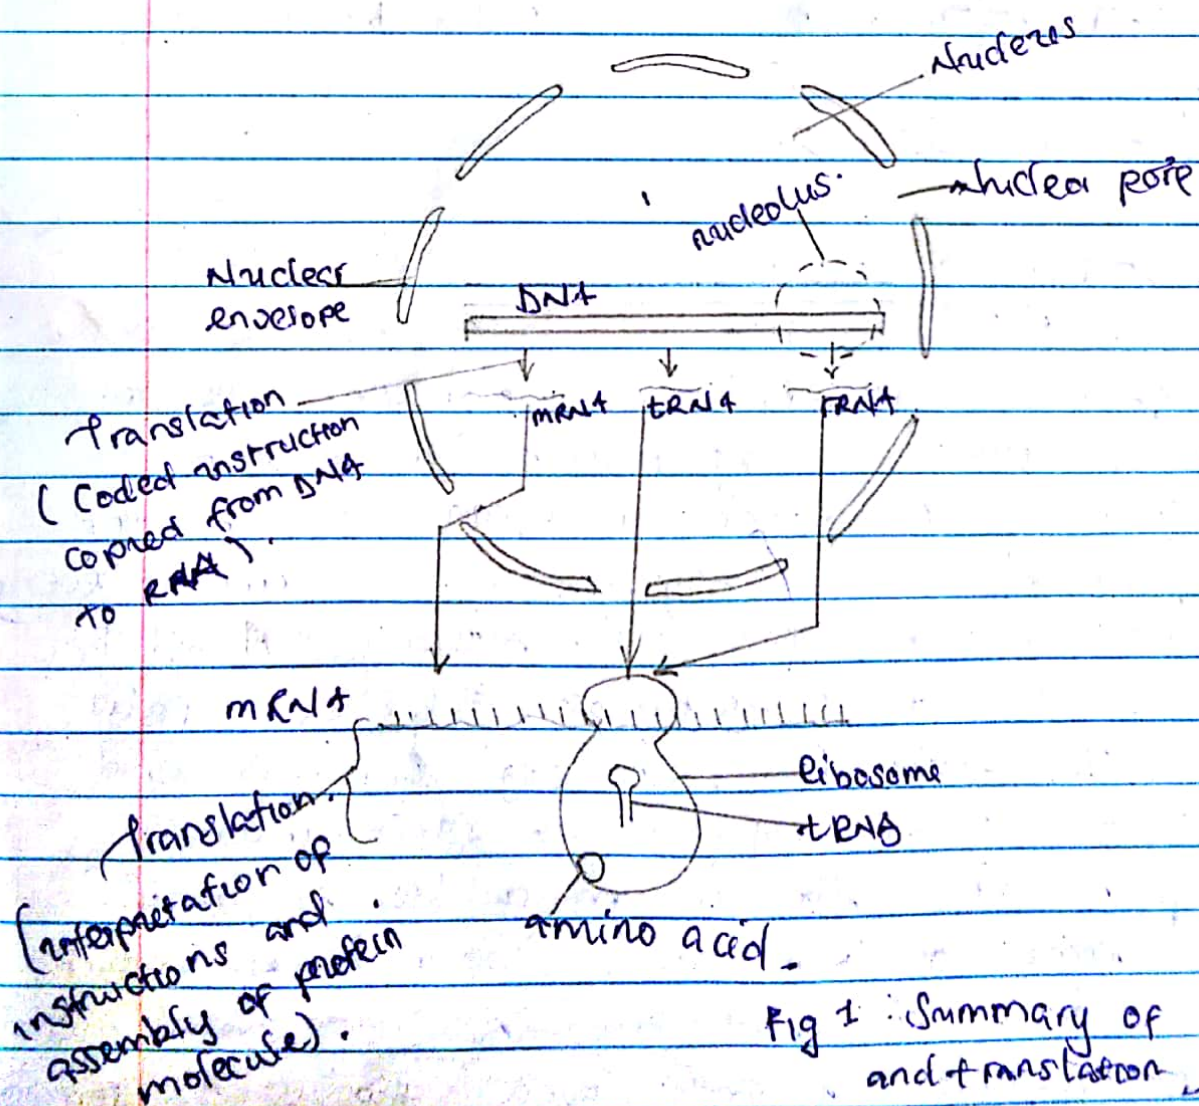 Nucleus
Nuclea pore
nucleolus.
Nuclear
envelope
DNA
Translation
(Coded instruction
copied from DNA
to RNA).
mRNA
tRNA
rRNA
mRNA
Ribosome
tRNA
Translation.
(interpretation of
instructions and
assembly of protein
molecule).
amino acid.
Fig 1 : Summary of
and translation.